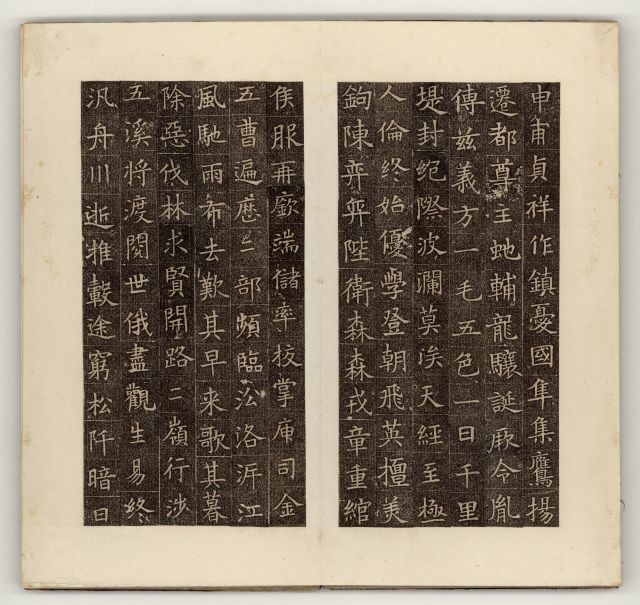 申甫貞祥作鎮憂國隼集鷹揚
遷都尊王虵輔龍驤誕厥令胤
傳兹義方一毛五色一日千里
堤封絕際波瀾莫涘天經至極
人倫終始優學登朝飛英擅美
鉤陳弈弈陛衛森森戎章重綰
侯服再廞端儲率校掌庫司金
五曹遍歷二部頻臨沁洛汧江
風馳雨布去歎其早来歌其暮
除惡伐林求賢開路二嶺行涉
五溪將渡閱世俄盡觀生易終
汎舟川逝推轂途窮松阡暗日